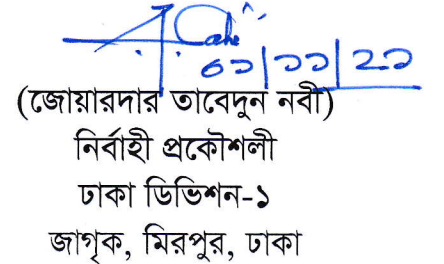 ০১|১১|২১
(জোয়ারদার তাবেদুন নবী)
নির্বাহী প্রকৌশলী
ঢাকা ডিভিশন-১
জাগৃক, মিরপুর, ঢাকা